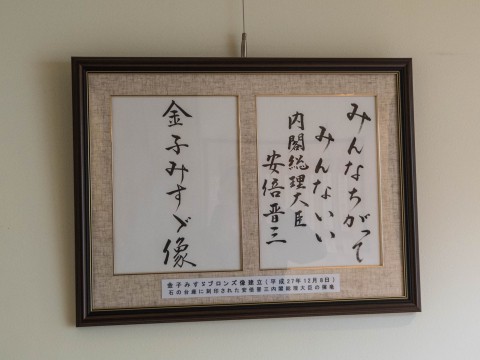 みんなちがって
みんないい
内閣総理大臣
安倍晋三
金子みすゞ像
金子みすゞブロンズ像建立(平成27年12月8日)
石の台座に刻印された安倍晋三内閣総理大臣の揮毫